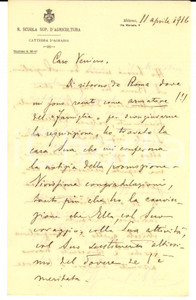 R. SCUOLA SUP. D'AGRICOLTURA
Milano, 11 aprile 1916
Caro Venino,
Di ritorno da Roma, dove
mi sono recato come armatore (!!!)
per scongiurarne
la requisizione, ho trovato la
cara Sua che mi conferma
la notizia della promozione -
Vivissime congratulazioni,
tanto più che ho la convin-
zione che Ella col Suo
coraggio, colla Sua attività,
col Suo sentimento altissi-
mo del dovere se l'è
meritata.